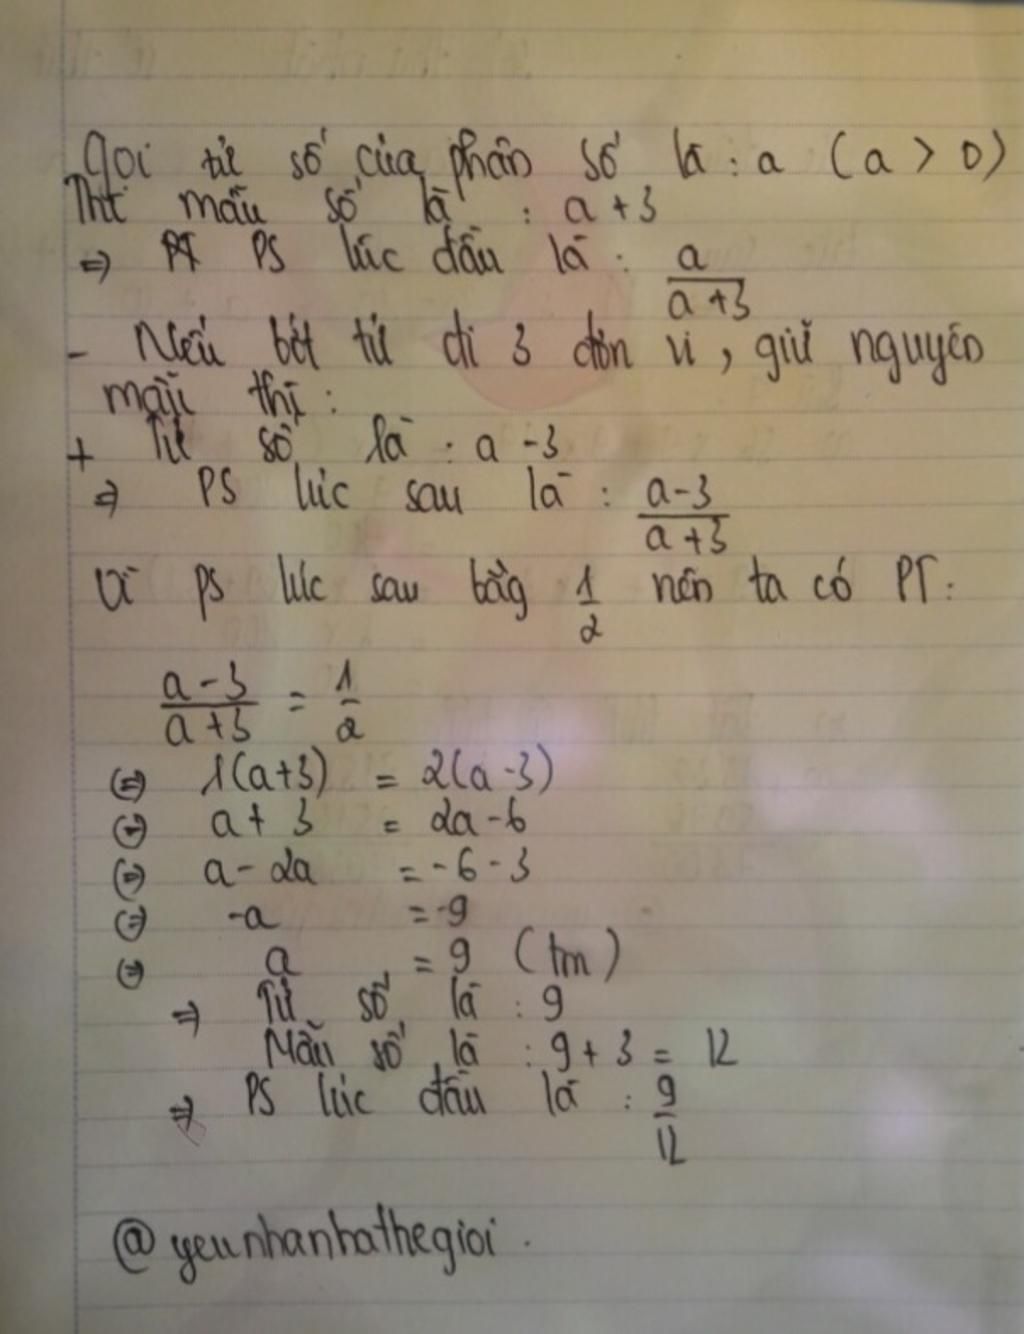 Gọi tử số của phân số là : a (a > 0)
Thì mẫu số là : a + 3
⇒ PS lúc đầu là : a/(a+3)
- Nếu bớt tử đi 3 đơn vị, giữ nguyên
mẫu thì :
+ Tử số là : a - 3
⇒ PS lúc sau là : (a-3)/(a+3)
Vì PS lúc sau bằg 1/2 nên ta có PT :
(a-3)/(a+3) = 1/2
⇔ 1(a+3) = 2(a-3)
⇔ a + 3 = 2a - 6
⇔ a - 2a = -6 - 3
⇔ -a = -9
⇔ a = 9 (tm)
⇒ Tử số là : 9
Mẫu số là : 9 + 3 = 12
⇒ PS lúc đầu là : 9/12
@yeunhanhathegioi.